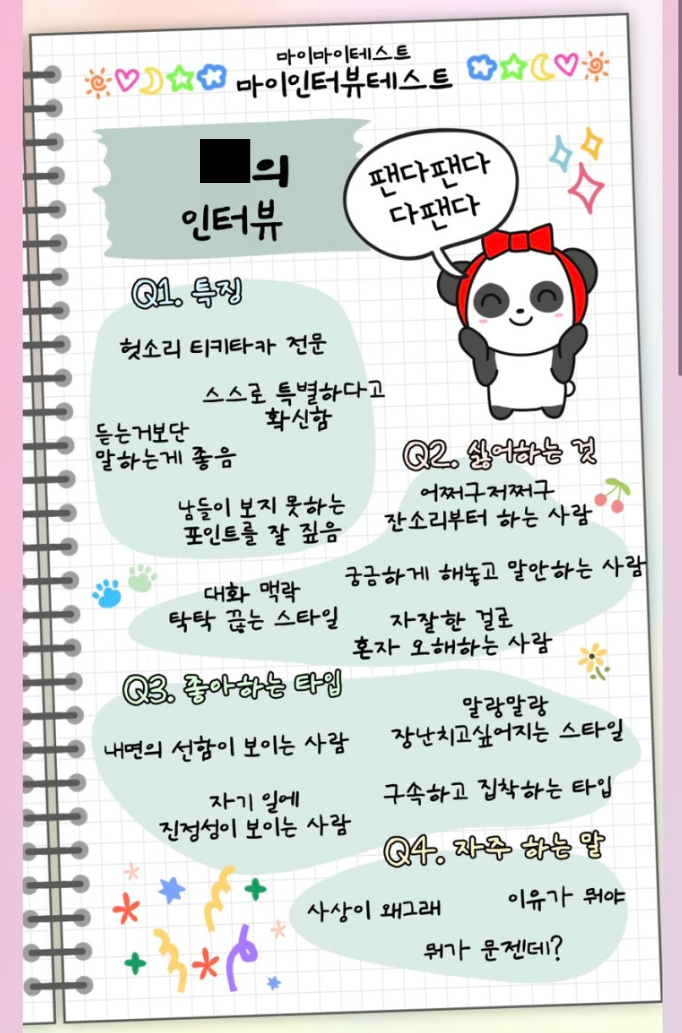 마이마이테스트
마이인터뷰테스트
의
인터뷰
팬다팬다
다팬다
Q1. 특징
헛소리 티키타카 전문
스스로 특별하다고
확신함
듣는거보단
말하는게 좋음
남들이 보지 못하는
포인트를 잘 짚음
Q2. 싫어하는 것
어쩌구저쩌구
잔소리부터 하는 사람
궁금하게 해놓고 말안하는 사람
대화 맥락
탁탁 끊는 스타일
자잘한 걸로
혼자 오해하는 사람
Q3. 좋아하는 타입
말랑말랑
장난치고싶어지는 스타일
내면의 선함이 보이는 사람
구속하고 집착하는 타입
자기 일에
진정성이 보이는 사람
Q4. 자주 하는 말
사상이 왜그래
이유가 뭐야
뭐가 문젠데?